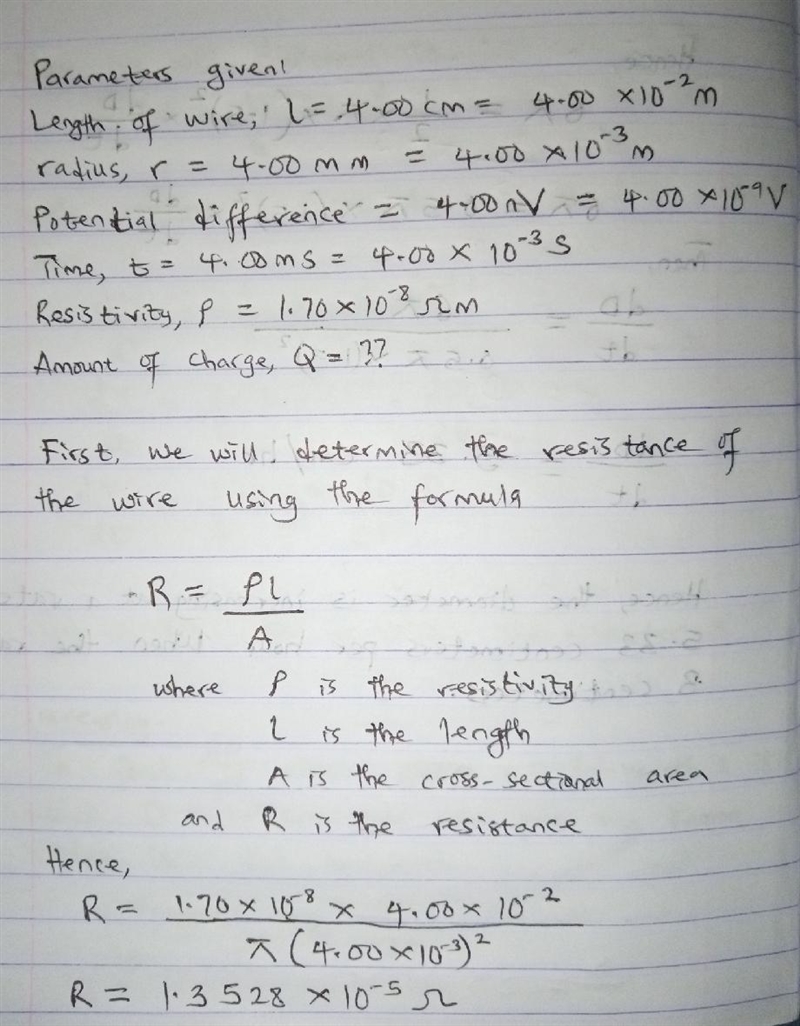 Parameters given!
Length of wire, l = 4.00 cm = 4.00 × 10⁻² m
radius, r = 4.00 mm = 4.00 × 10⁻³ m
Potential difference = 4.00 nV = 4.00 × 10⁻⁹ V
Time, t = 4.00 ms = 4.00 × 10⁻³ s
Resistivity, ρ = 1.70 × 10⁻⁸ Ωm
Amount of charge, Q = ??
First, we will determine the resistance of
the wire using the formula
R = ρl
A
where ρ is the resistivity
l is the length
A is the cross-sectional area
and R is the resistance
Hence,
R = 1.70 × 10⁻⁸ × 4.00 × 10⁻²
π (4.00 × 10⁻³)²
R = 1.3528 × 10⁻⁵ Ω